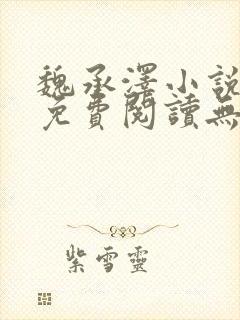 魏承澤小說
免費閱讀無
紫雪靈